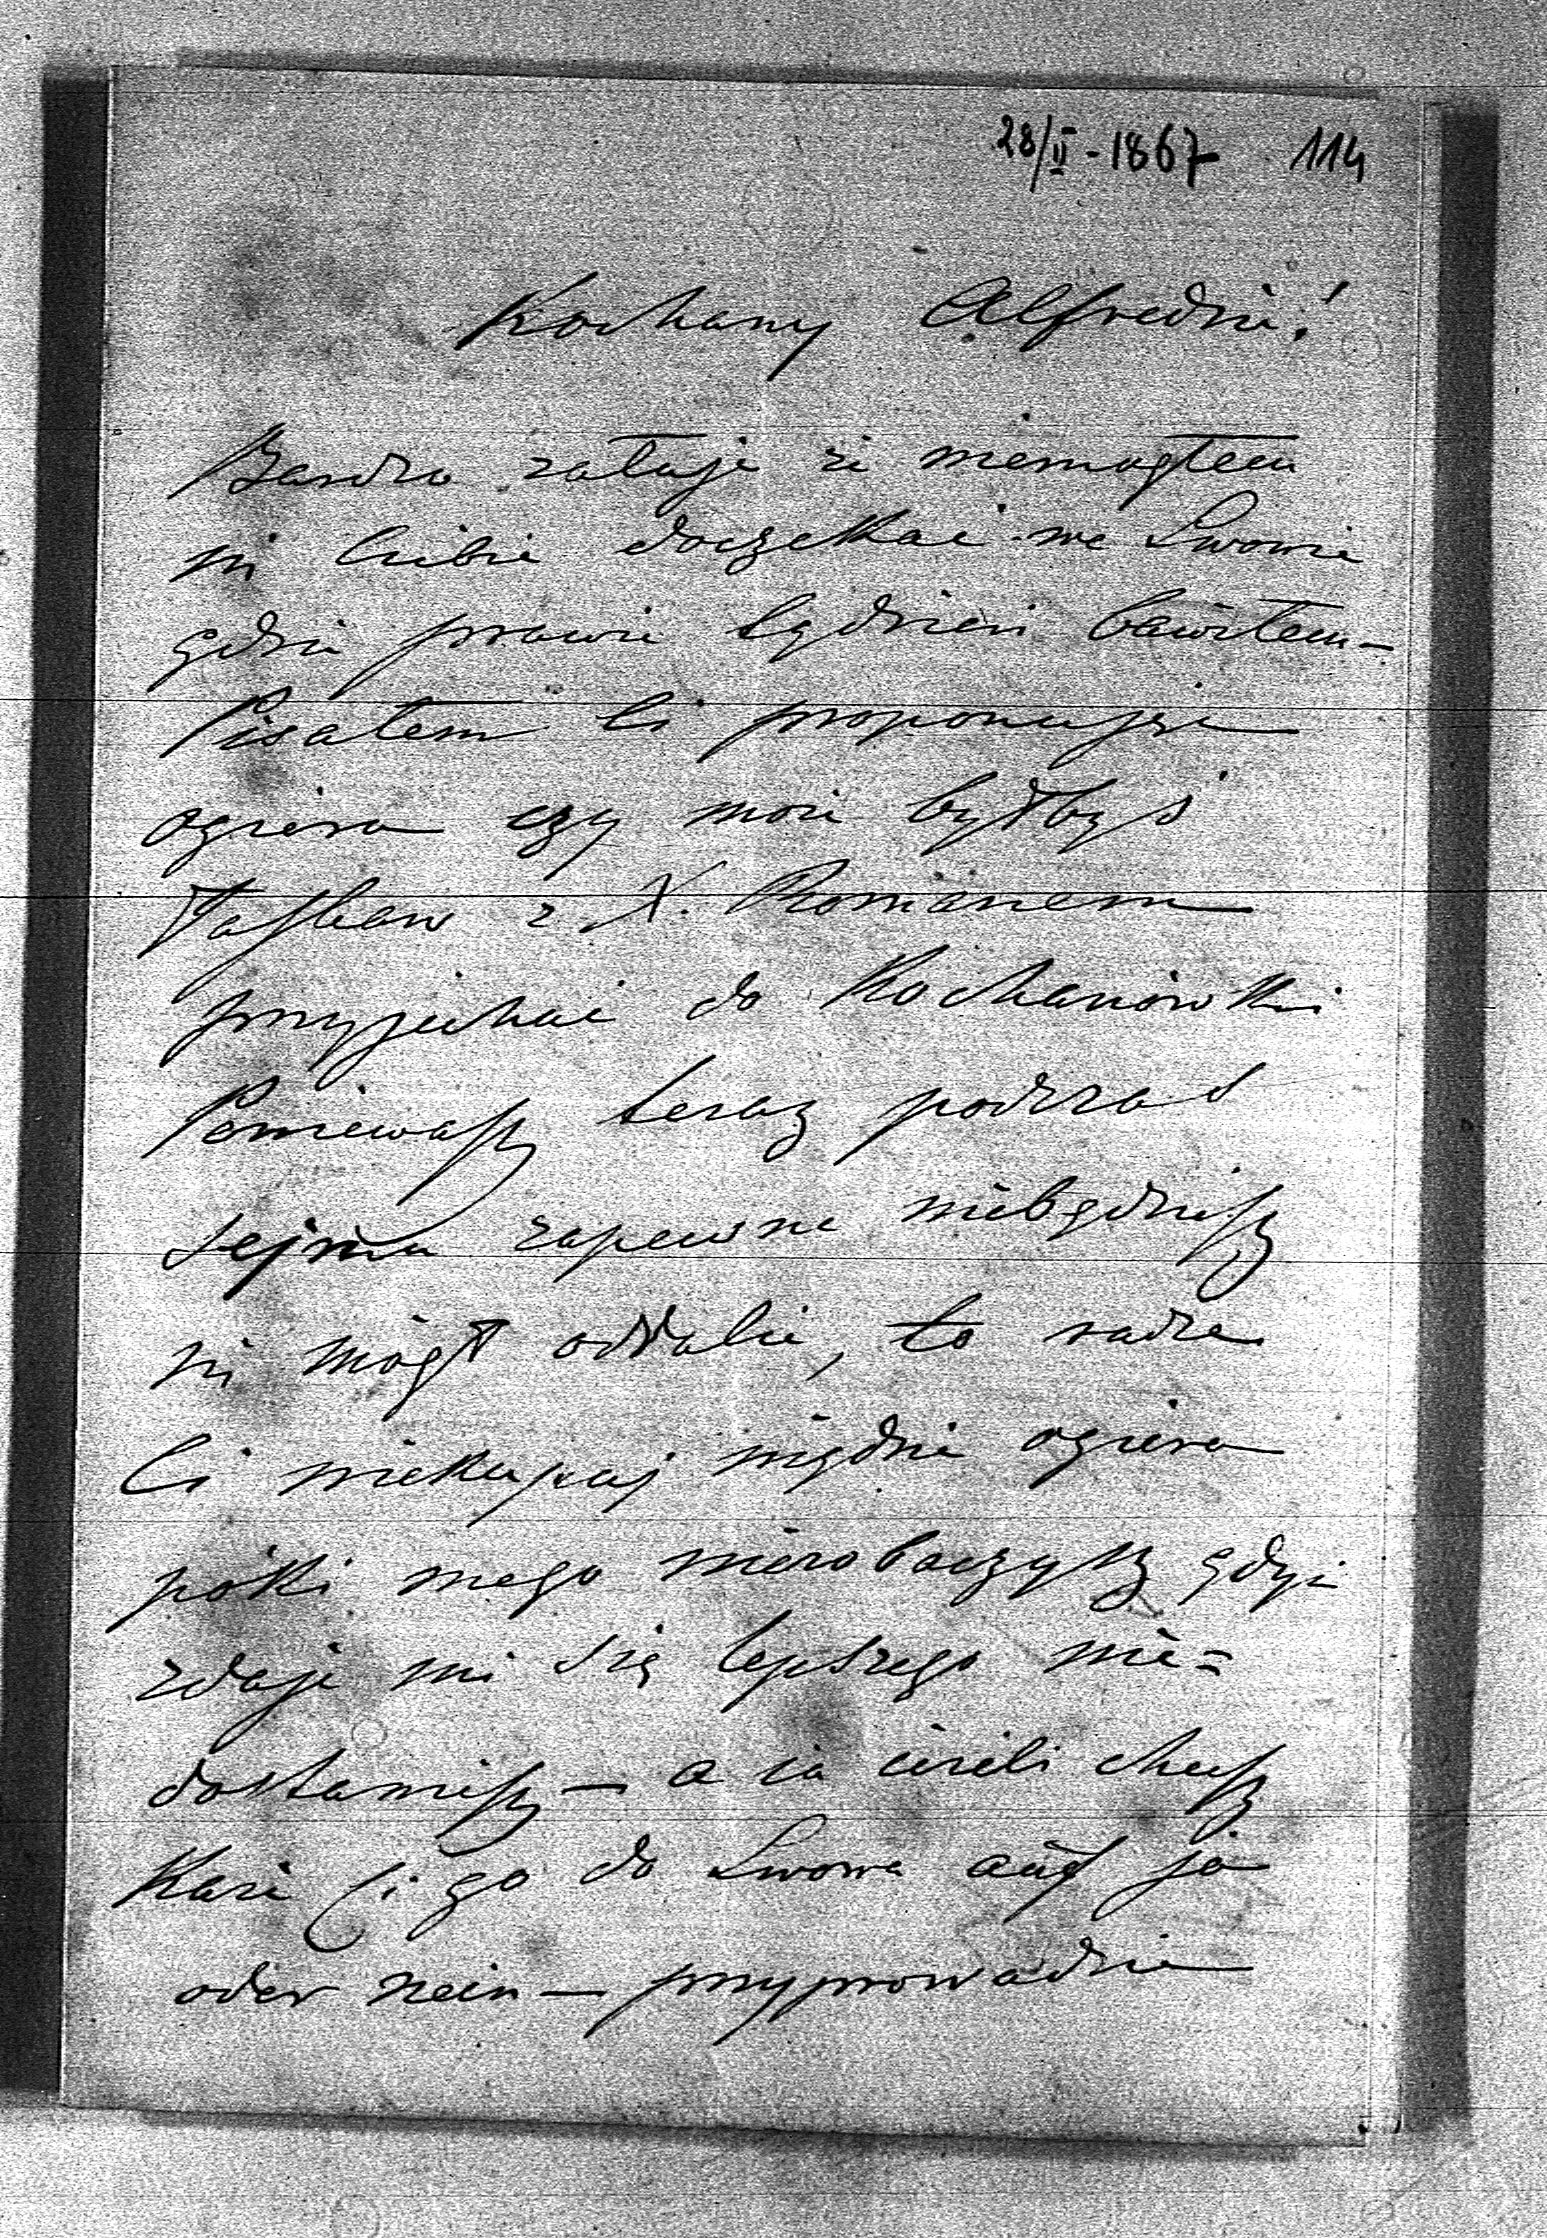 28/II - 1867 114
Kochany Alfredzie!
Bardzo żałuję że niemogłem
się Ciebie doczekać we Lwowie
gdzie prawie tydzień bawiłem –
Pisałem Ci proponując
ogiera czy może byłbyś
łaskaw z X. Romanem
przyjechać do Kochanówki
Ponieważ teraz podczas
sejmu zapewne niebędziesz
się mógł oddalić, to radzę
Ci niekupuj nigdzie ogiera
póki mego niezobaczysz gdyż
zdaje mi się lepszego nie=
dostaniesz – a ja jeżeli chcesz
Każę Ci go do Lwowa auf ja
oder nein – przyprowadzić